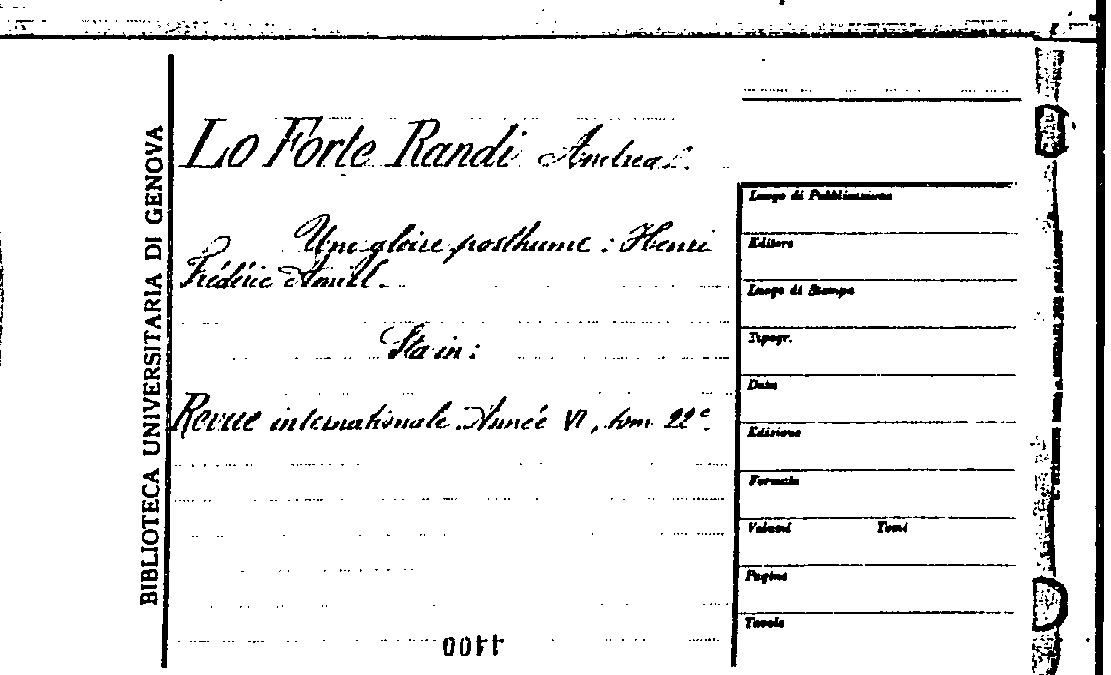 BIBLIOTECA UNIVERSITARIA DI GENOVA
Lo Forte Randi Andrea.
Une gloire posthume : Henri
Frédéric Amiel.
Sta in :
Revue internationale. Année VI, tom 22e.
Luogo di Pubblicazione
Editore
Luogo di Stampa
Tipogr.
Data
Edizione
Formato
Volumi Tomi
Pagine
Tavole